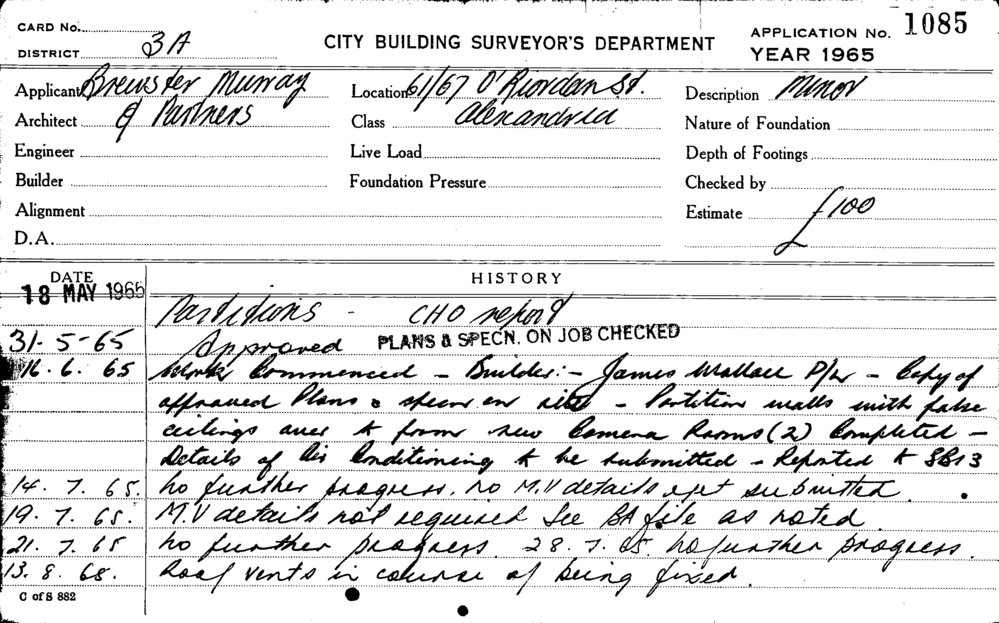 CARD No.
DISTRICT 3A
CITY BUILDING SURVEYOR'S DEPARTMENT
APPLICATION No. 1085
YEAR 1965
Applicant Brewster Murray
Location 61/67 O'Riordan St.
Description Minor
Architect & Partners
Class Alexandria
Nature of Foundation
Engineer
Live Load
Depth of Footings
Builder
Foundation Pressure
Checked by
Alignment
Estimate £100
D.A.
DATE
HISTORY
18 MAY 1965
Partitions - CHO report
31-5-65 Approved PLANS & SPECN. ON JOB CHECKED
16.6.65 Work Commenced - Builder:- James Wallace P/L - Copy of
approved Plans & specn on site - Partition walls with false
ceilings over to form new Camera Rooms (2) Completed -
Details of Air Conditioning to be submitted - Reported to SB13
14.7.65. No further progress. No M.V details yet submitted.
19.7.65. M.V details not required See BA file as noted.
21.7.65 No further progress. 28.7.65 No further progress.
13.8.65. Roof vents in course of being fixed.
C of S 882